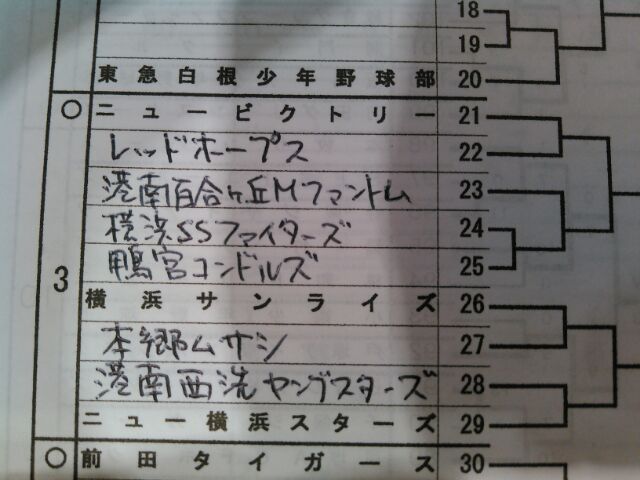 18
19
東急白根少年野球部 20
○ ニュービクトリー 21
レッドホープス 22
港南百合ヶ丘Mファントム 23
横浜SSファイターズ 24
鴨宮コンドルズ 25
3
横浜サンライズ 26
本郷ムサシ 27
港南西洗ヤングスターズ 28
ニュー横浜スターズ 29
○ 前田タイガース 30